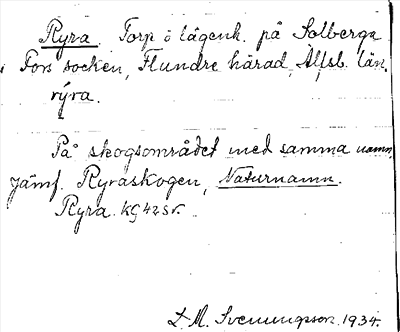 Ryra. Torp o lägenh. på Solberga
i Fors socken, Flundre härad, Älfsb. län.
rýra.
På skogsområdet med samma namn,
jämf. Ryraskogen, Naturnamn.
Ryra. KG 42 Sv.
L. M. Svenungsson. 1934.